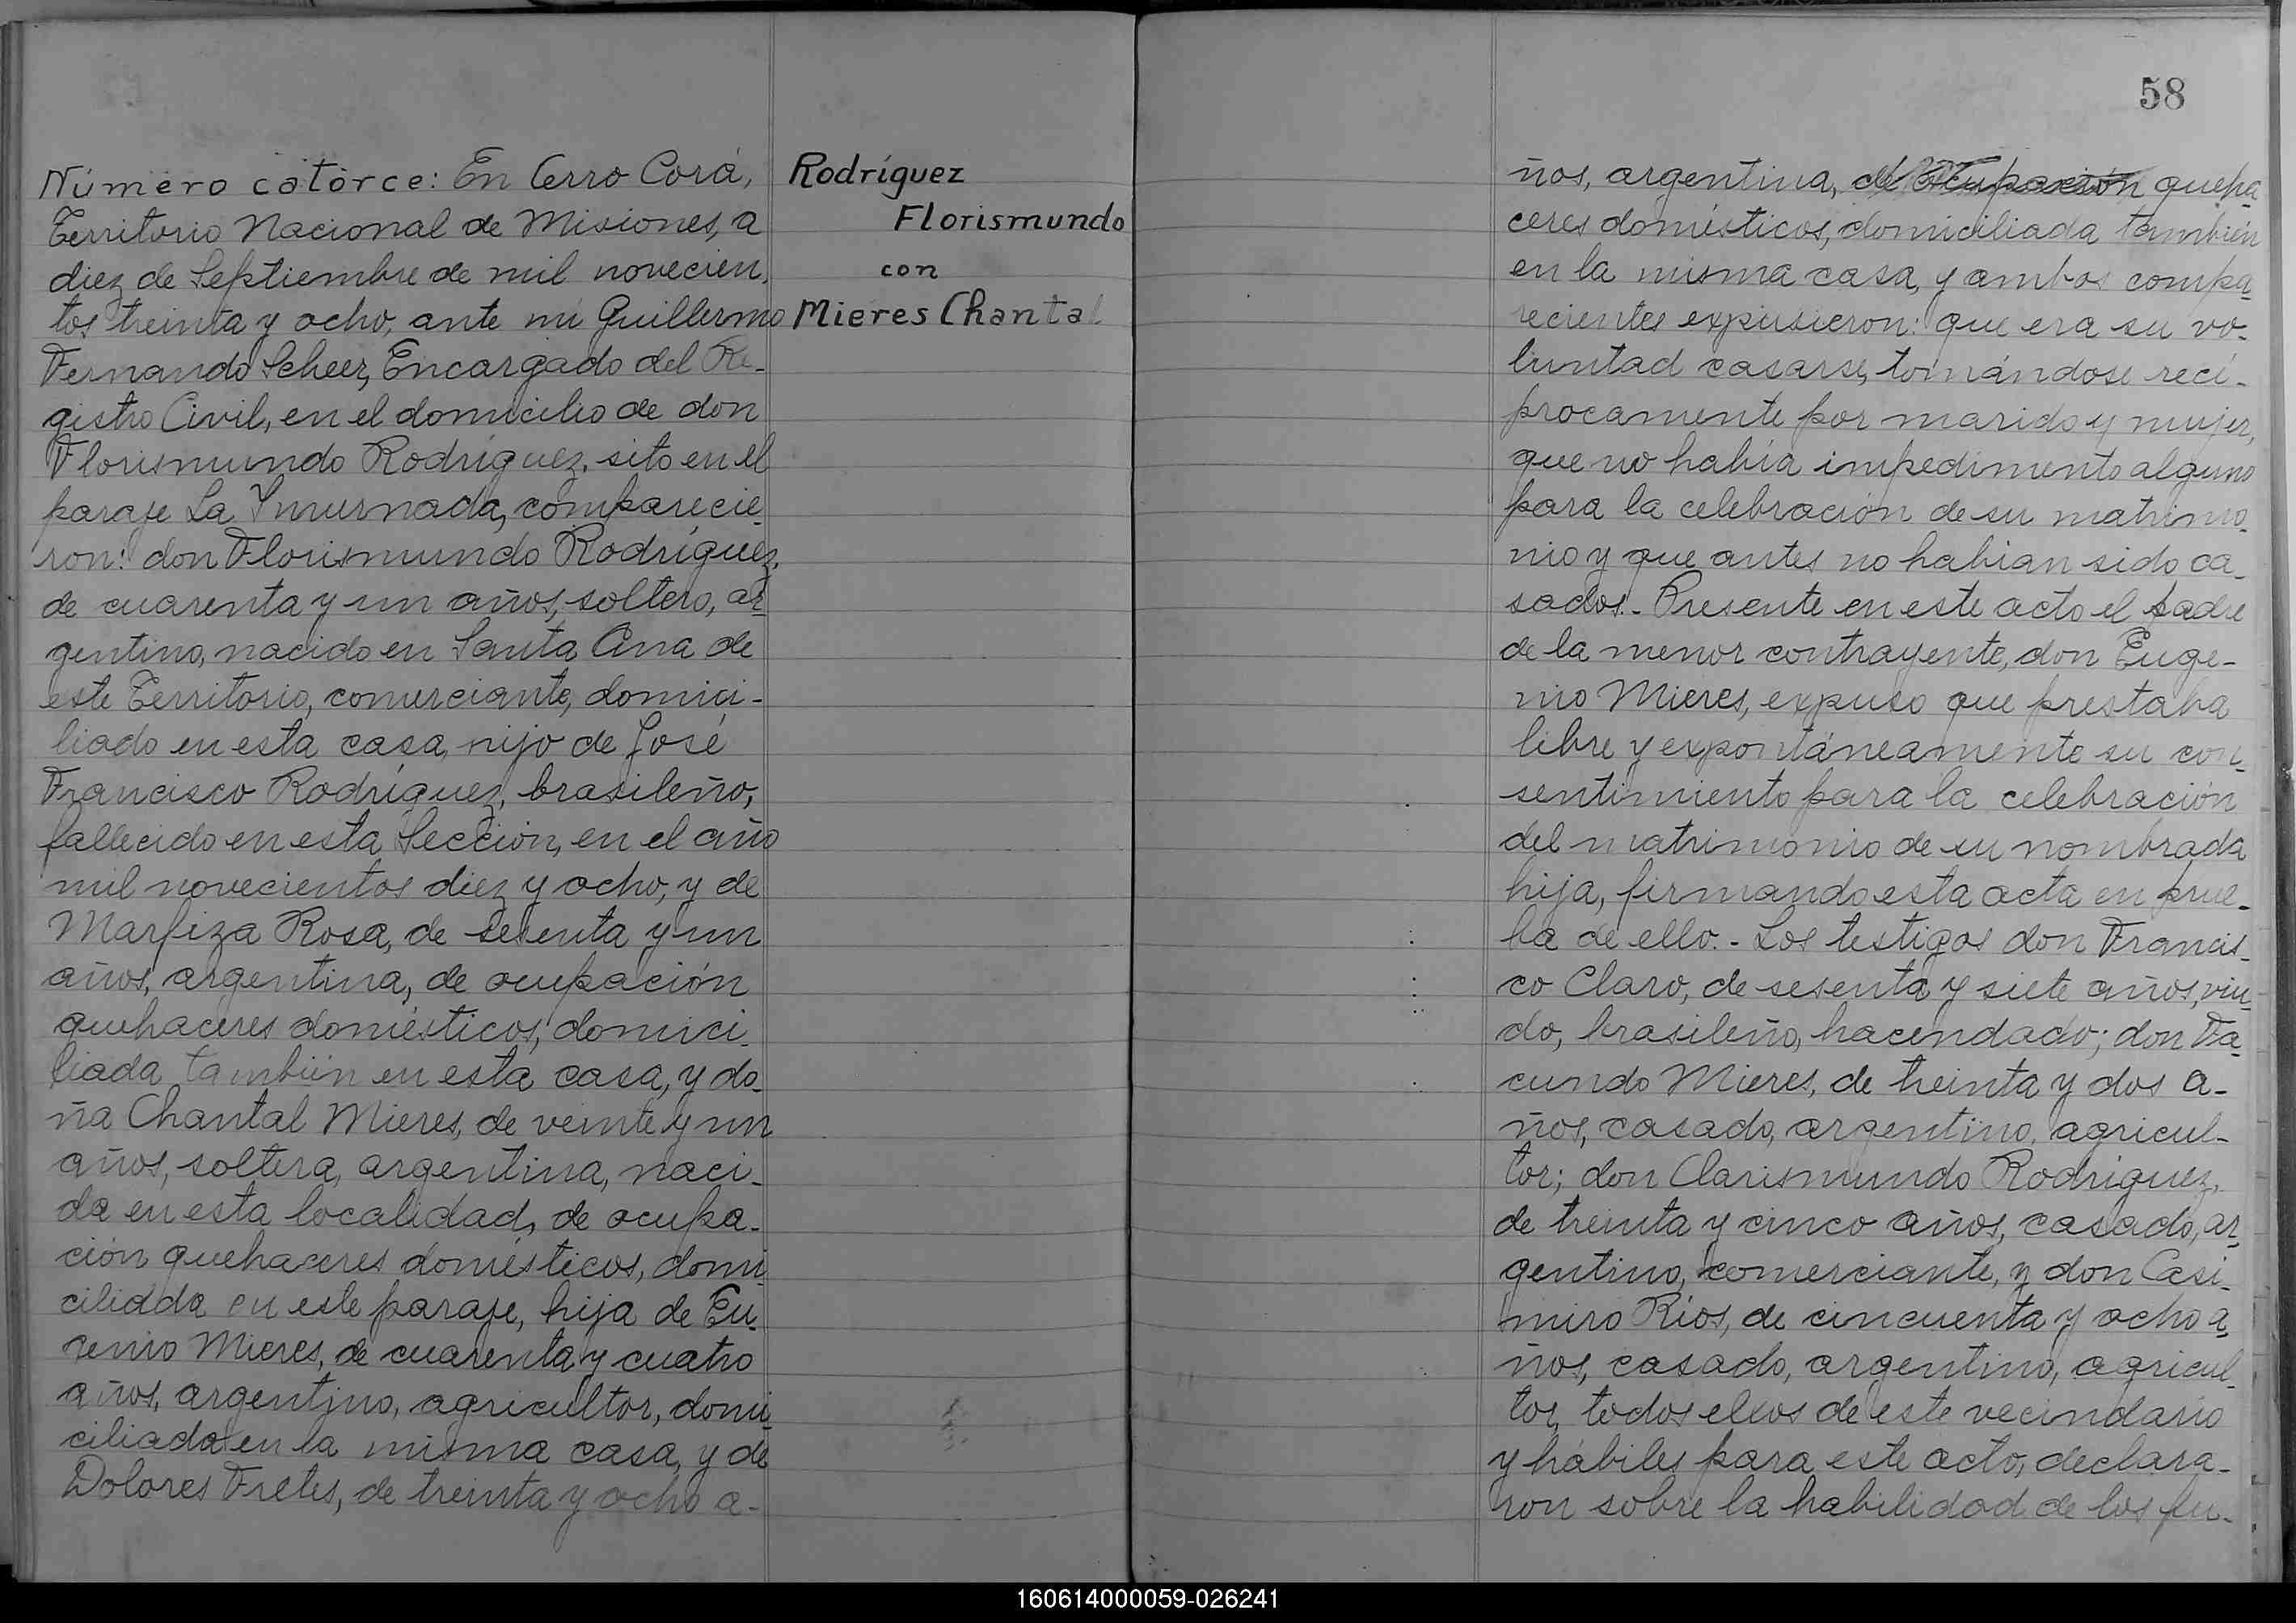 Número catorce: En Cerro Corá,
Territorio Nacional de Misiones, a
diez de Septiembre de mil novecien,
tos treinta y ocho, ante mí Guillermo
Fernando Scheer, Encargado del Re-
gistro Civil, en el domicilio de don
Florismundo Rodríguez, sito en el
paraje La comparecie_
ron: don Florismundo Rodríguez,
de cuarenta y un años, soltero, ar_
gentino, nacido en Santa Ana de
este Territorio, comerciante, domici-
liado en esta casa, hijo de José
Francisco Rodríguez, brasileño,
fallecido en esta Sección, en el año
mil novecientos diez y ocho, y de
Marfiza Rosa, de sesenta y un
años, argentina, de ocupación
quehaceres domésticos, domici_
liada también en esta casa, y do_
ña Chantal Mieres, de veinte y un
años, soltera, argentina, naci_
da en esta localidad, de ocupa_
ción quehaceres domésticos, domi_
ciliada en este paraje, hija de Eu_
genio Mieres, de cuarenta y cuatro
años, argentino, agricultor, domi_
ciliado en la misma casa, y de
Dolores Fretes, de treinta y ocho a-
Rodríguez
Florismundo
con
Mieres Chantal
58
ños, argentina, de ocupación queha_
ceres domésticos, domiciliada también
en la misma casa, y ambos compa_
recientes expusieron: que era su vo-
luntad casarse, tomándose recí-
procamente por marido y mujer,
que no había impedimento alguno
para la celebración de su matrimo_
nio y que antes no habían sido ca_
sados.- Presente en este acto el padre
de la menor contrayente, don Euge-
nio Mieres, expuso que prestaba
libre y expontáneamente su con_
sentimiento para la celebración
del matrimonio de su nombrada
hija, firmando esta acta en prue_
ba de ello.- Los testigos don Francis_
co Claro, de sesenta y siete años, viu_
do, brasileño, hacendado; don Fa_
cundo Mieres, de treinta y dos a-
ños, casado, argentino, agricul-
tor; don Clarismundo Rodríguez,
de treinta y cinco años, casado, ar_
gentino, comerciante, y don Casi_
miro Ríos, de cincuenta y ocho a_
ños, casado, argentino, agricul_
tor, todos ellos de este vecindario
y hábiles para este acto, declara-
ron sobre la habilidad de los fu-
160614000059-026241